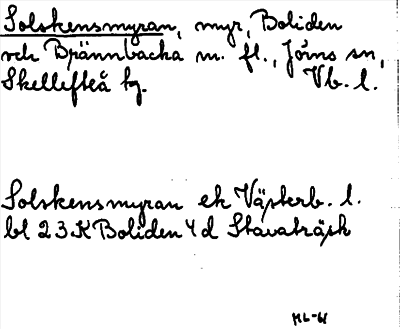 Solskensmyran, myr, Boliden
och Brännbacka m. fl., Jörns sn,
Skellefteå kg. Vb. l.
Solskensmyran ek Västerb. l.
bl 23 K Boliden 4 d Stavaträsk